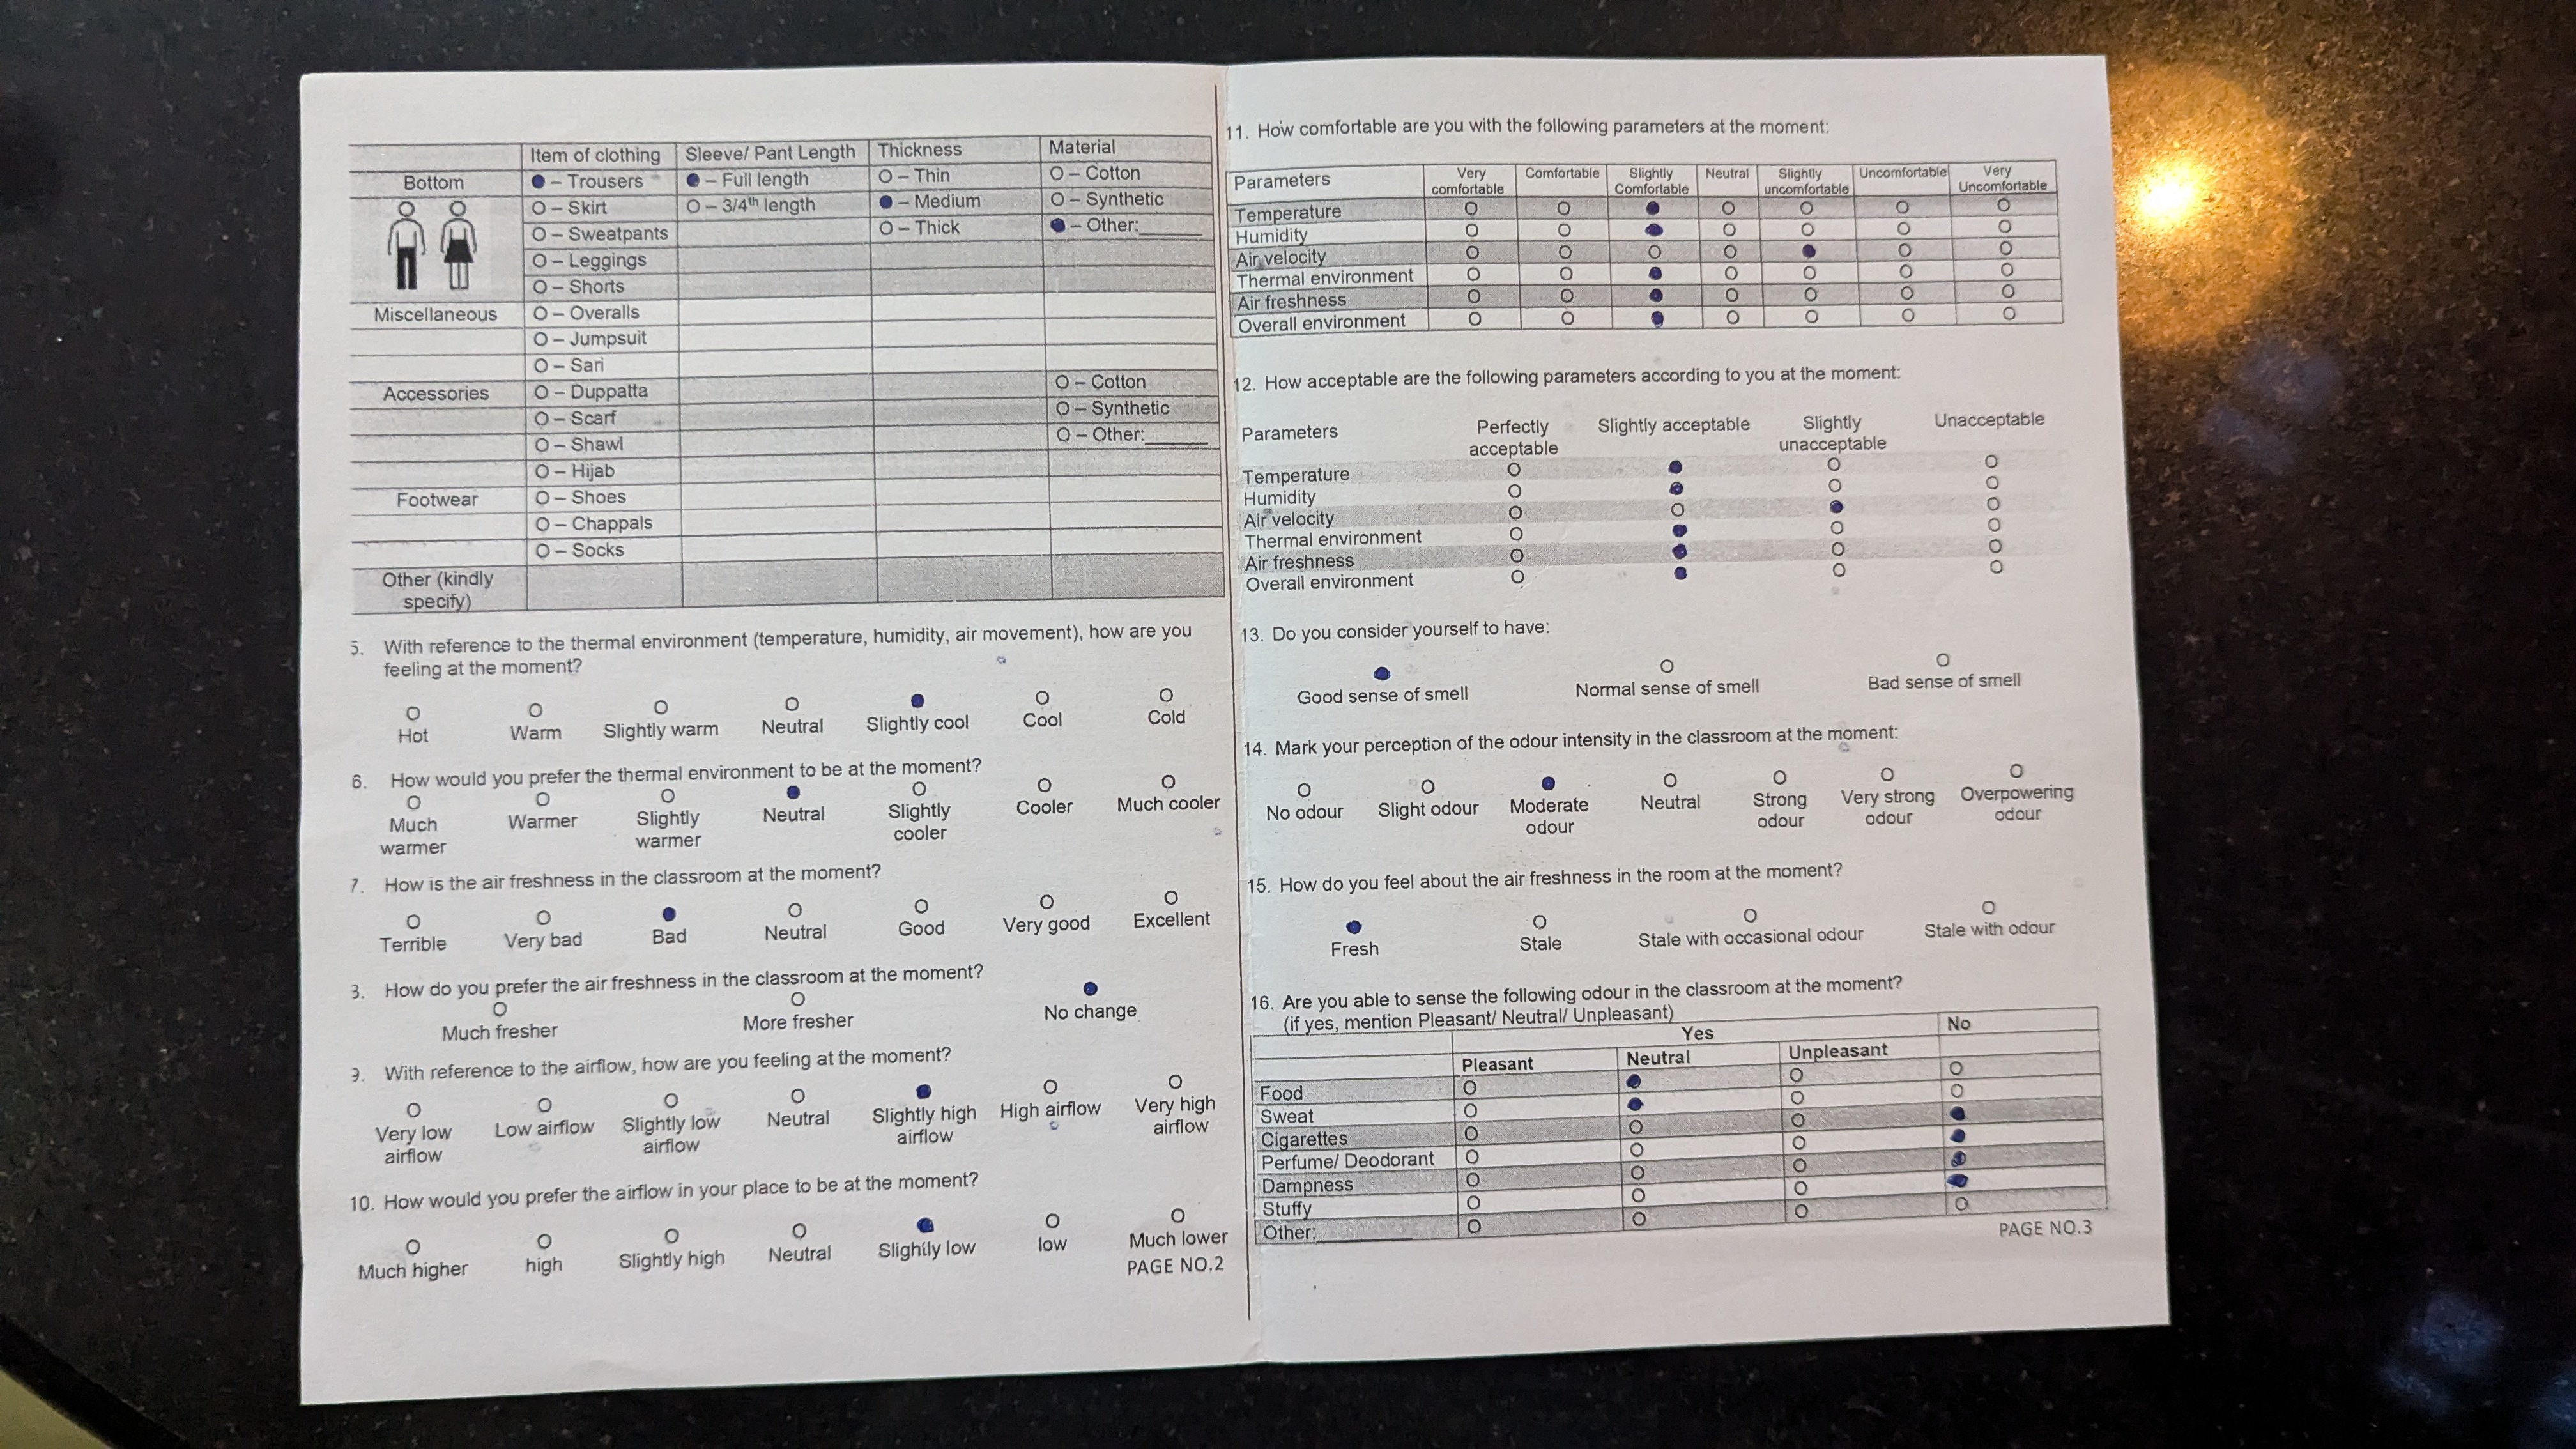 Item of clothing Sleeve/ Pant Length Thickness Material
Bottom ● – Trousers ● – Full length O – Thin O – Cotton
O – Skirt O – 3/4th length ● – Medium O – Synthetic
O – Sweatpants O – Thick ● – Other:______
O – Leggings
O – Shorts
Miscellaneous O – Overalls
O – Jumpsuit
O – Sari
Accessories O – Duppatta O – Cotton
O – Scarf O – Synthetic
O – Shawl O – Other:______
O – Hijab
Footwear O – Shoes
O – Chappals
O – Socks
Other (kindly
specify)
5. With reference to the thermal environment (temperature, humidity, air movement), how are you
feeling at the moment?
O O O O ● O O
Hot Warm Slightly warm Neutral Slightly cool Cool Cold
6. How would you prefer the thermal environment to be at the moment?
O O O ● O O O
Much Warmer Slightly Neutral Slightly Cooler Much cooler
warmer warmer cooler
7. How is the air freshness in the classroom at the moment?
O O ● O O O O
Terrible Very bad Bad Neutral Good Very good Excellent
8. How do you prefer the air freshness in the classroom at the moment?
O O ●
Much fresher More fresher No change
9. With reference to the airflow, how are you feeling at the moment?
O O O O ● O O
Very low Low airflow Slightly low Neutral Slightly high High airflow Very high
airflow airflow airflow airflow
10. How would you prefer the airflow in your place to be at the moment?
O O O O ● O O
Much higher high Slightly high Neutral Slightly low low Much lower
PAGE NO.2
11. How comfortable are you with the following parameters at the moment:
Parameters Very Comfortable Slightly Neutral Slightly Uncomfortable Very
comfortable Comfortable uncomfortable Uncomfortable
Temperature O O ● O O O O
Humidity O O ● O O O O
Air velocity O O O O ● O O
Thermal environment O O ● O O O O
Air freshness O O ● O O O O
Overall environment O O ● O O O O
12. How acceptable are the following parameters according to you at the moment:
Parameters Perfectly Slightly acceptable Slightly Unacceptable
acceptable unacceptable
Temperature O ● O O
Humidity O ● O O
Air velocity O O ● O
Thermal environment O ● O O
Air freshness O ● O O
Overall environment O ● O O
13. Do you consider yourself to have:
● O O
Good sense of smell Normal sense of smell Bad sense of smell
14. Mark your perception of the odour intensity in the classroom at the moment:
O O ● O O O O
No odour Slight odour Moderate Neutral Strong Very strong Overpowering
odour odour odour odour
15. How do you feel about the air freshness in the room at the moment?
● O O O
Fresh Stale Stale with occasional odour Stale with odour
16. Are you able to sense the following odour in the classroom at the moment?
(if yes, mention Pleasant/ Neutral/ Unpleasant)
Yes No
Pleasant Neutral Unpleasant
Food O ● O O
Sweat O ● O O
Cigarettes O O O ●
Perfume/ Deodorant O O O ●
Dampness O O O ●
Stuffy O O O ●
Other:__________ O O O O
PAGE NO.3